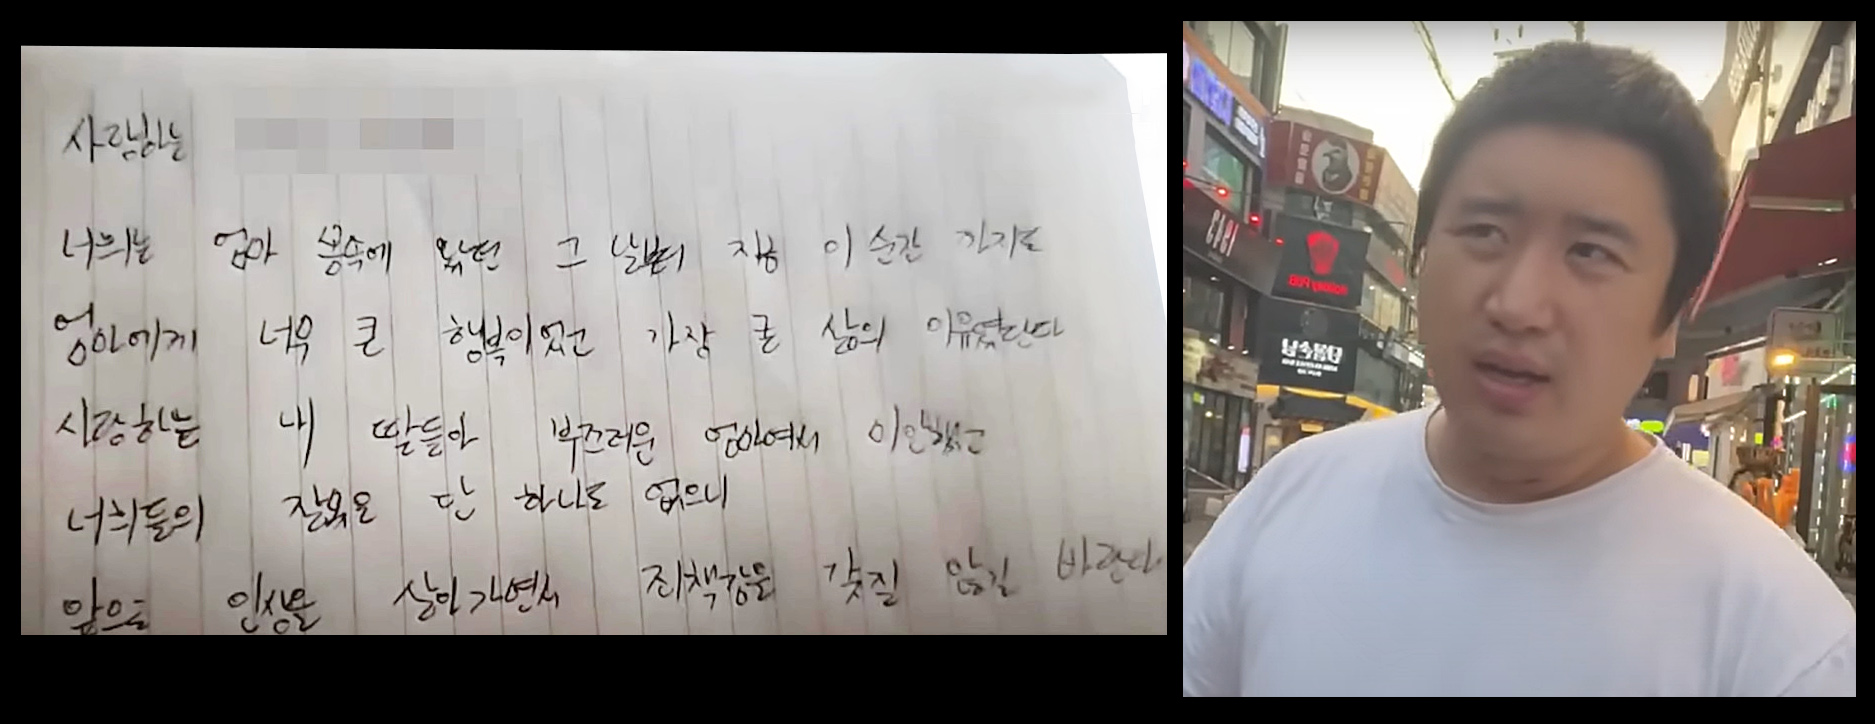 사랑하는
너희는 엄마 몸속에 왔던 그 날부터 지금 이 순간 까지도
엄마에게 너무 큰 행복이었고 가장 큰 삶의 이유였단다
사랑하는 내 딸들아 부끄러운 엄마여서 미안했고
너희들의 잘못은 단 하나도 없으니
앞으로 인생을 살아가면서 죄책감을 갖질 않길 바란다
1943